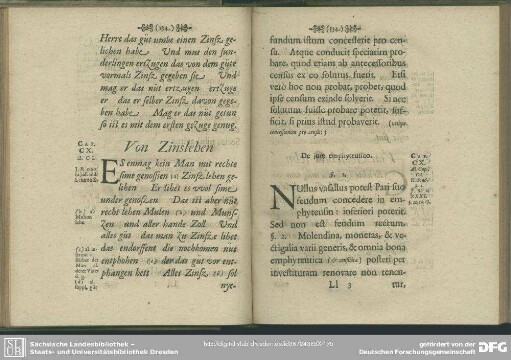 (134.)
Herre das gut umbe einen Zinsz ge-
lichen habe Und mus den sun-
derlingen ertzugen das von dem gute
vormals Zinsz gegeben sie Und
mag er das nut ertzugen ertzuge
er das er selber Zinsz davon gege-
ben habe Mag er das nut getun
so ist es mit dem ersten gezuge genug.
CAP.
CX.
Von Zinsleben
ES enmag kein Man mit rechte
sime genossen Zinsz leben ge-
leben Er libet es wool sime
under genossen Das ist aber nut
recht leben Mulen und Muns-
zen und aller hande Zoll Und
alles gut das man zu Zinsze libet
das endorffent die nochkomen nut
entphohen der das gut vor ent-
phangen hett Alles Zinsz sol
nye-
(134.)
fundum istum concesserit pro cen-
su. Atque conducit speciatim pro-
bare, quod etiam ab antecessoribus
census ex eo solutus fuerit. Isti
vero hoc non probat, probet, quod
ipse censum exinde solverit. Si nec
solutum fuisse probare poterit, suf-
ficit, si prius istud probaverit.
De jure emphyteutico.
§. 1.
NUllus vasallus potest Pari suo
feudum concedere in em-
phyteusin: inferiori poterit.
Sed non est feudum rectum.
§. 2. Molendina, monetas, & ve-
ctigalia varii generis, & omnia bona
emphyteutica posteri per
investituram renovare non tenen-
Ll 3 tur,
CAP.
CX.
Sächsische Landesbibliothek –
Staats- und Universitätsbibliothek Dresden
gefördert von der
Deutschen Forschungsgemeinschaft
DFG